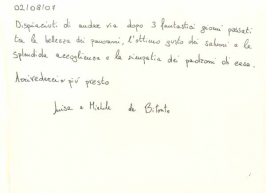 02/08/07
Dispiaciuti di andar via dopo 3 fantastici giorni passati
tra la bellezza dei panorami, l'ottimo gusto dei sapori e la
splendida accoglienza e la simpatia dei padroni di casa.
Arrivederci a più presto
Luisa e Michele da Bitonto